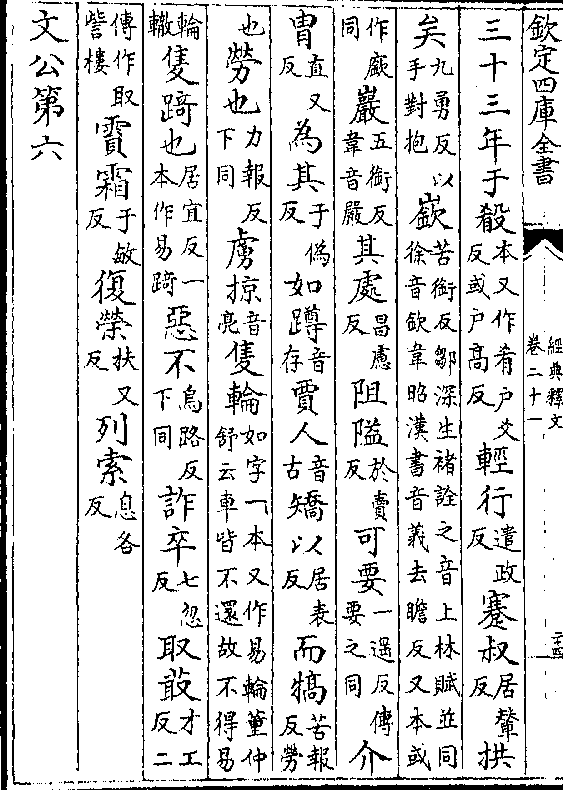 欽定四庫全書
經典釋文
卷二十一
三十三年于殽本又作肴户交反或户高反輕行遣政反蹇叔居輦反拱
矣九勇反以手對抱嶔苦銜反鄒深生褚詮之音上林賦並同徐音欽韋昭漢書音義去瞻反又本或
作廞同巖五銜反韋音嚴其處昌慮反阻隘於賣反可要一遥反傳要之同介
冑直又反為其于偽反如蹲音存賈人音古矯以居表反而犒苦報反勞
也勞也力報反下同虜掠音亮隻輪如字一本又作易輪董仲舒云車皆不還故不得易
輪轍隻踦也居宜反一本作易踦惡不烏路反下同詐卒七忽反取菆才工反二
傳作取訾樓霣霜于敏反復榮扶又反列索息各反
文公第六